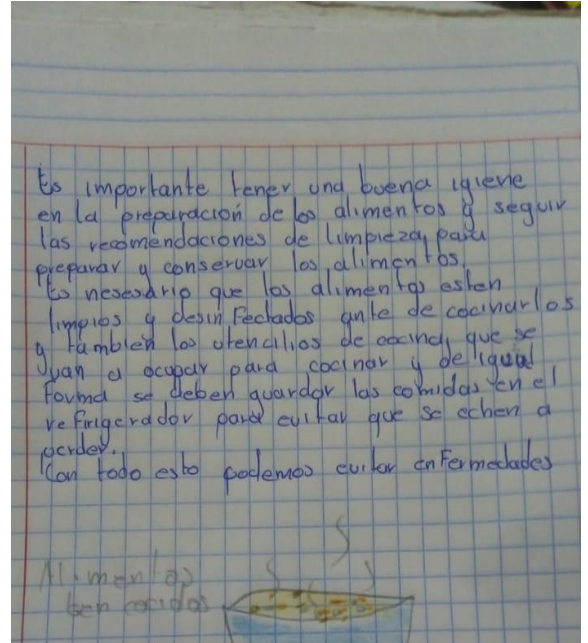 Es importante tener una buena igiene
en la preparación de los alimentos y seguir
las recomendaciones de limpieza, para
preparar y conservar los alimentos.
Es nesesario que los alimentos esten
limpios y desinfectados ante de cocinarlos
y también los utencilios de cocina, que se
van a ocupar para cocinar y de igual
forma se deben guardar las comidas en el
refrigerador para evitar que se echen a
perder.
Con todo esto podemos evitar enfermedades
Alimentos
ben cocidos